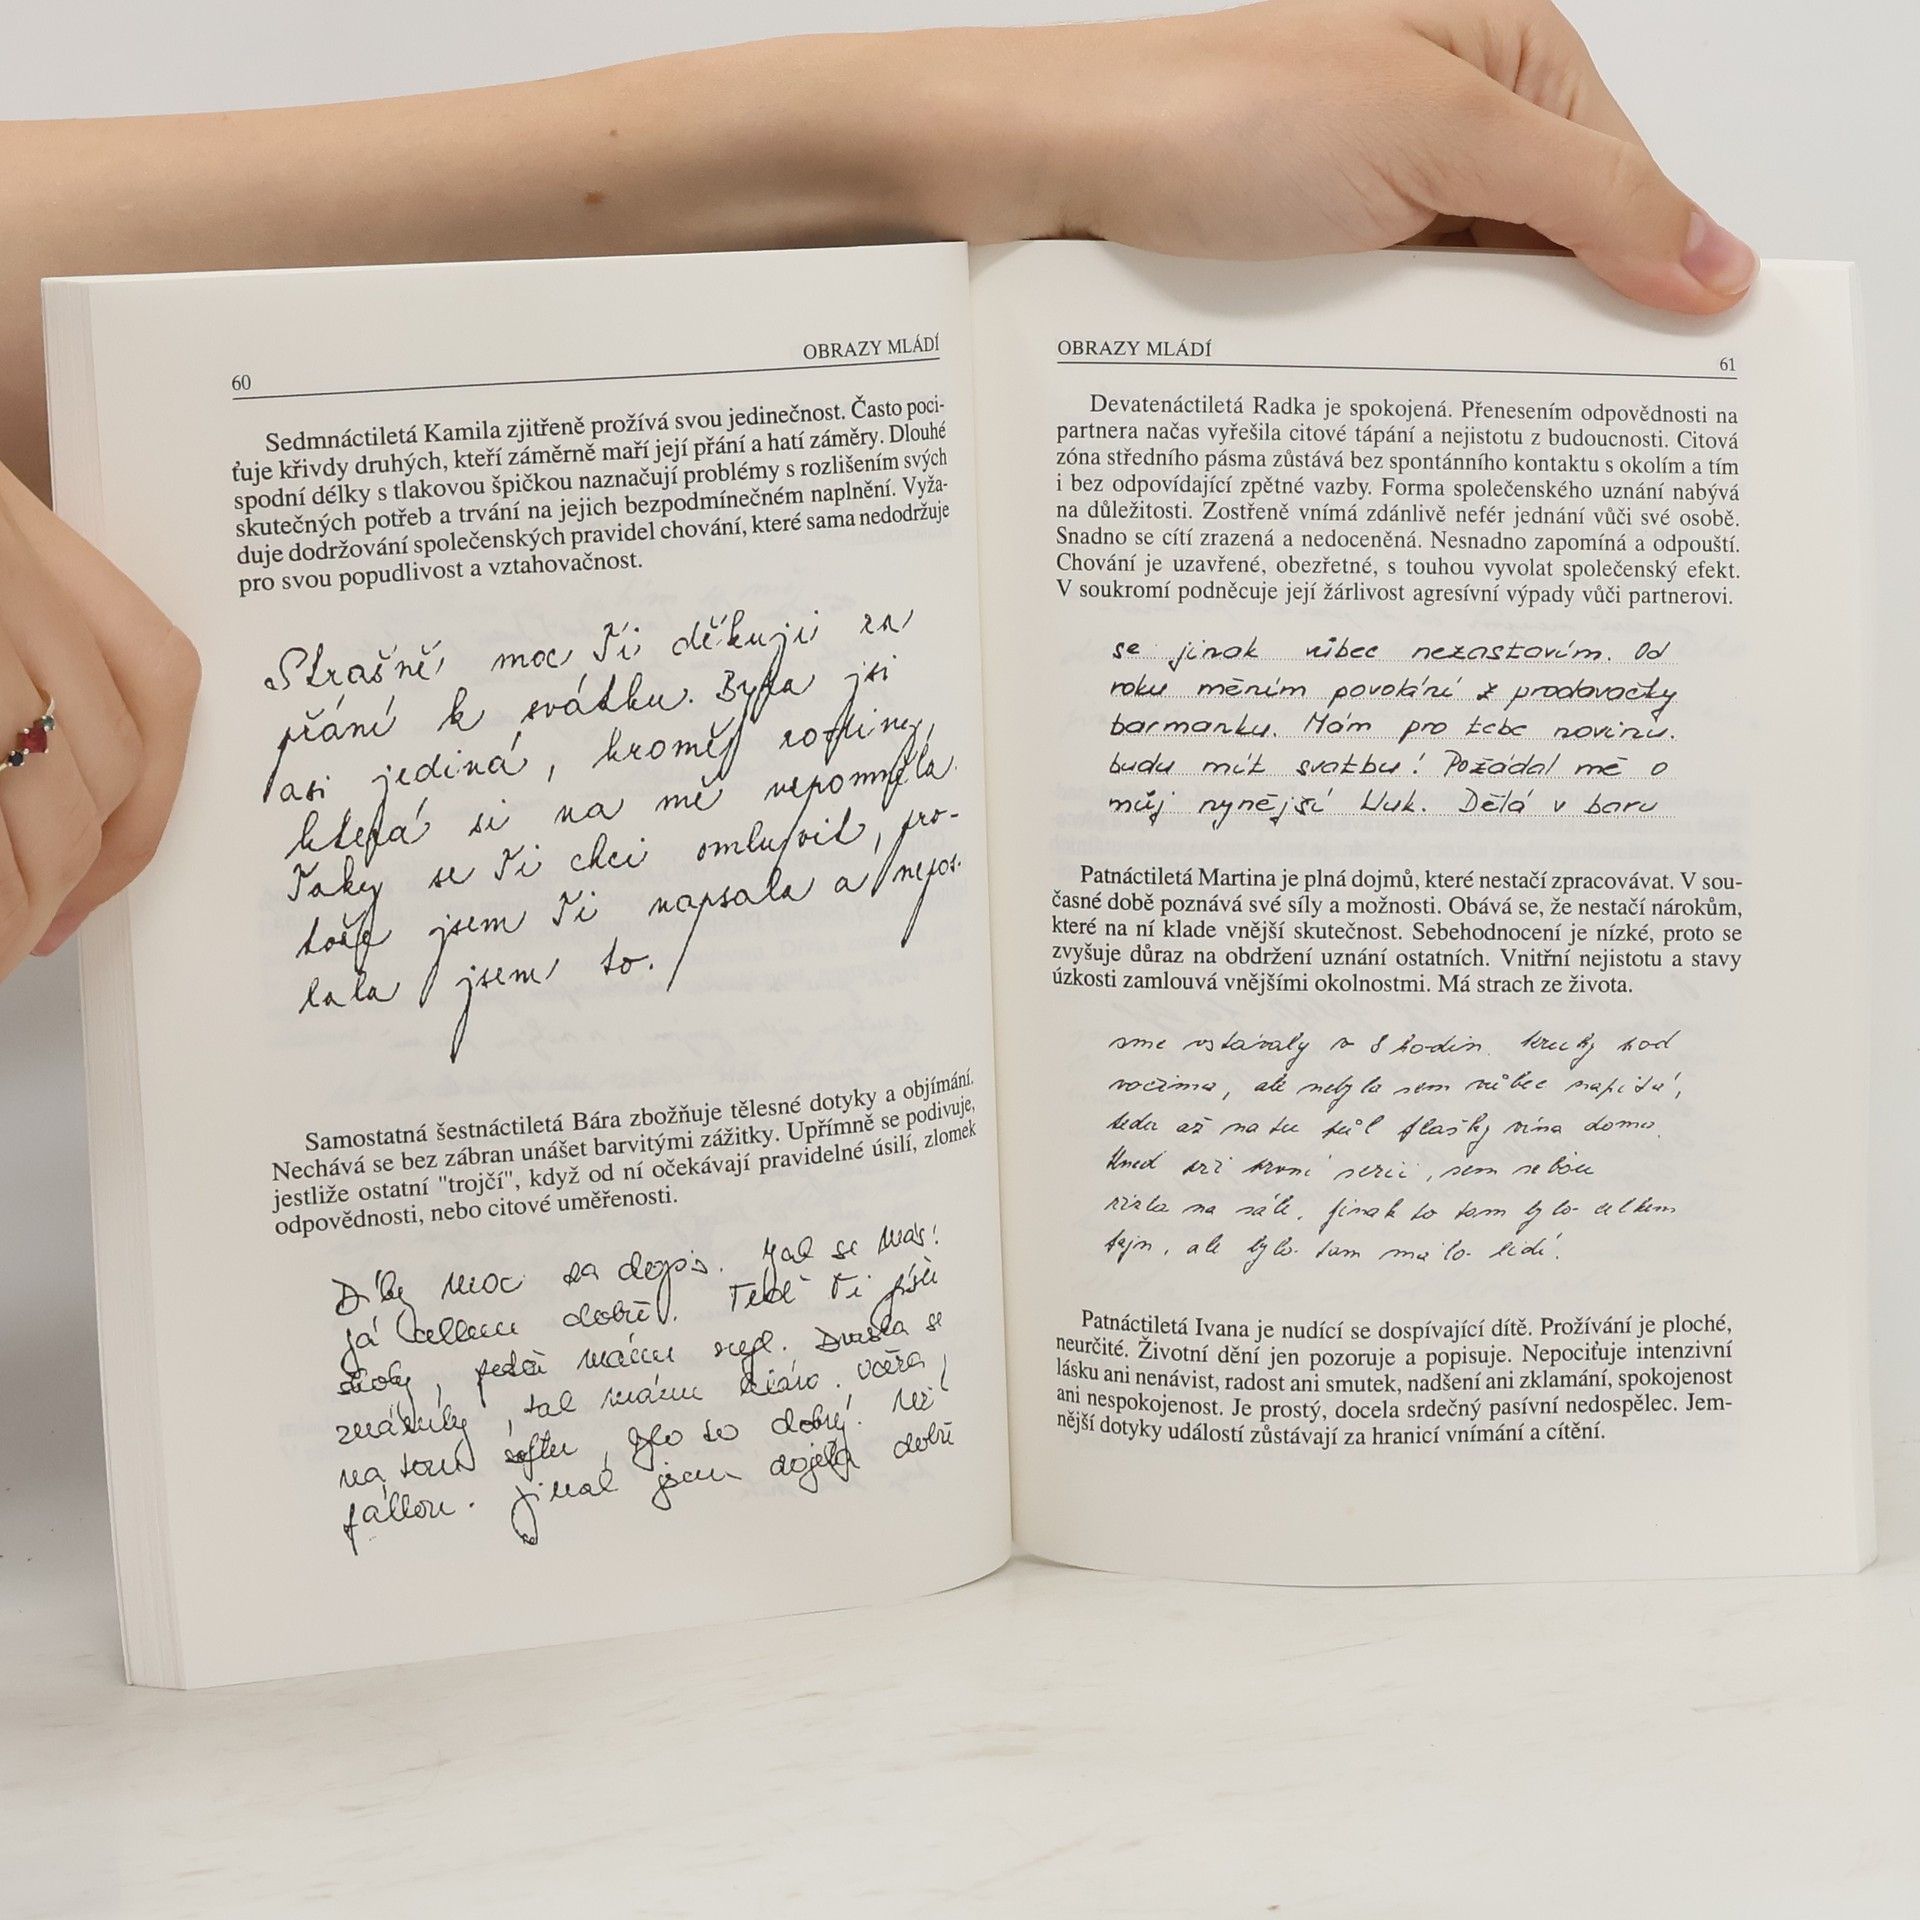 60
OBRAZY MLÁDÍ
Sedmnáctiletá Kamila zjitřeně prožívá svou jedinečnost. Často poci-
ťuje křivdy druhých, kteří záměrně maří její přání a hatí záměry. Dlouhé
spodní délky s tlakovou špičkou naznačují problémy s rozlišením svých
skutečných potřeb a trvání na jejich bezpodmínečném naplnění. Vyža-
duje dodržování společenských pravidel chování, které sama nedodržuje
pro svou popudlivost a vztahovačnost.
Strašně moc Ti děkuji za
přání k svátku. Byla jsi
asi jediná, kromě rodiny,
která si na mě vzpomněla.
Taky se Ti chci omluvit, pro-
tože jsem Ti napsala a nepos-
lala jsem to.
Samostatná šestnáctiletá Bára zbožňuje tělesné dotyky a objímání.
Nechává se bez zábran unášet barvitými zážitky. Upřímně se podivuje,
jestliže ostatní "trojčí", když od ní očekávají pravidelné úsilí, zlomek
odpovědnosti, nebo citové uměřenosti.
Díky moc za dopis. Jak se máš!
Já celkem dobře. Teď Ti píši
máme
, tak máme . včera
na tom , bylo to dobrý. Než
. Jinak jsem dojela dobře
OBRAZY MLÁDÍ
61
Devatenáctiletá Radka je spokojená. Přenesením odpovědnosti na
partnera načas vyřešila citové tápání a nejistotu z budoucnosti. Citová
zóna středního pásma zůstává bez spontánního kontaktu s okolím a tím
i bez odpovídající zpětné vazby. Forma společenského uznání nabývá
na důležitosti. Zostřeně vnímá zdánlivě nefér jednání vůči své osobě.
Snadno se cítí zrazená a nedoceněná. Nesnadno zapomíná a odpouští.
Chování je uzavřené, obezřetné, s touhou vyvolat společenský efekt.
V soukromí podněcuje její žárlivost agresívní výpady vůči partnerovi.
se jinak vůbec nezastavím. Od
roku měním povolání z prodavačky
barmanku. Mám pro tebe novinu.
budu mít svatbu! Požádal mě o
můj nynější kluk. Dělá v baru
Patnáctiletá Martina je plná dojmů, které nestačí zpracovávat. V sou-
časné době poznává své síly a možnosti. Obává se, že nestačí nárokům,
které na ní klade vnější skutečnost. Sebehodnocení je nízké, proto se
zvyšuje důraz na obdržení uznání ostatních. Vnitřní nejistotu a stavy
úzkosti zamlouvá vnějšími okolnostmi. Má strach ze života.
sme vstávaly v 8 hodin. kruhy pod
vočima, ale nebyla sem vůbec napitá,
teda až na tu půl flašky vína doma.
Hned při první serii, sem sebou
na sále, jinak to tam bylo celkem
fajn, ale bylo tam málo lidí.
Patnáctiletá Ivana je nudící se dospívající dítě. Prožívání je ploché,
neurčité. Životní dění jen pozoruje a popisuje. Nepociťuje intenzivní
lásku ani nenávist, radost ani smutek, nadšení ani zklamání, spokojenost
ani nespokojenost. Je prostý, docela srdečný pasívní nedospělec. Jem-
nější dotyky událostí zůstávají za hranicí vnímání a cítění.